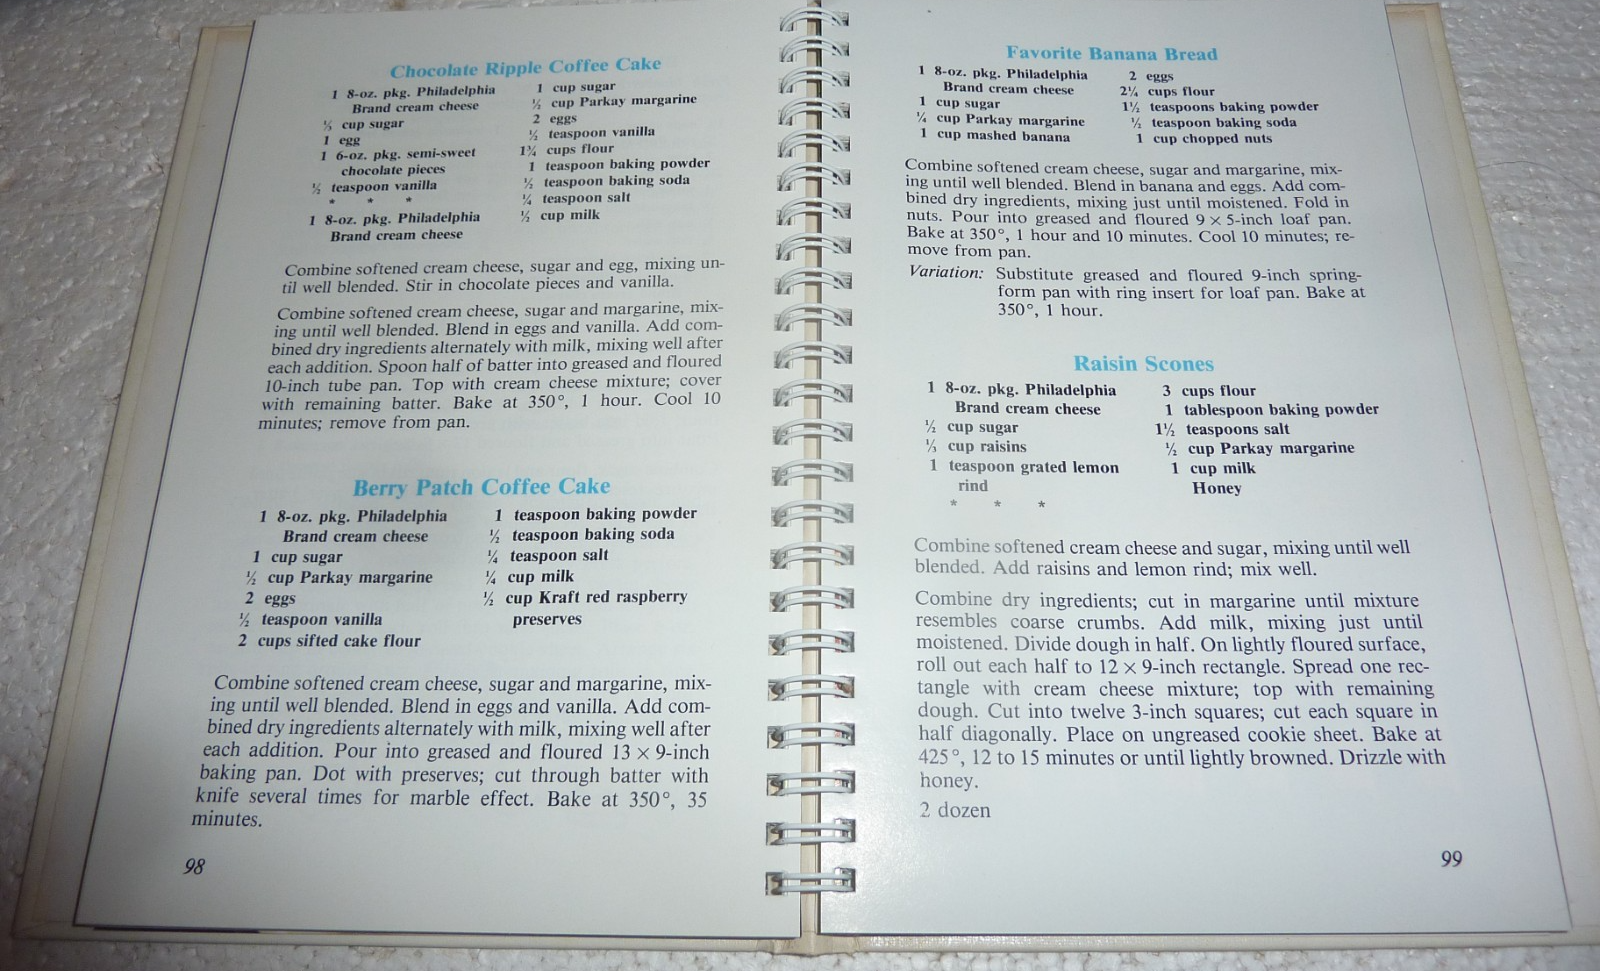 Chocolate Ripple Coffee Cake
1 8-oz. pkg. Philadelphia
Brand cream cheese
⅓ cup sugar
1 egg
1 6-oz. pkg. semi-sweet
chocolate pieces
½ teaspoon vanilla
* * *
1 8-oz. pkg. Philadelphia
Brand cream cheese
1 cup sugar
½ cup Parkay margarine
2 eggs
½ teaspoon vanilla
1¾ cups flour
1 teaspoon baking powder
½ teaspoon baking soda
¼ teaspoon salt
½ cup milk
Combine softened cream cheese, sugar and egg, mixing un-
til well blended. Stir in chocolate pieces and vanilla.
Combine softened cream cheese, sugar and margarine, mix-
ing until well blended. Blend in eggs and vanilla. Add com-
bined dry ingredients alternately with milk, mixing well after
each addition. Spoon half of batter into greased and floured
10-inch tube pan. Top with cream cheese mixture; cover
with remaining batter. Bake at 350°, 1 hour. Cool 10
minutes; remove from pan.
Berry Patch Coffee Cake
1 8-oz. pkg. Philadelphia
Brand cream cheese
1 cup sugar
½ cup Parkay margarine
2 eggs
½ teaspoon vanilla
2 cups sifted cake flour
1 teaspoon baking powder
½ teaspoon baking soda
¼ teaspoon salt
¼ cup milk
½ cup Kraft red raspberry
preserves
Combine softened cream cheese, sugar and margarine, mix-
ing until well blended. Blend in eggs and vanilla. Add com-
bined dry ingredients alternately with milk, mixing well after
each addition. Pour into greased and floured 13 × 9-inch
baking pan. Dot with preserves; cut through batter with
knife several times for marble effect. Bake at 350°, 35
minutes.
98
Favorite Banana Bread
1 8-oz. pkg. Philadelphia
Brand cream cheese
1 cup sugar
¼ cup Parkay margarine
1 cup mashed banana
2 eggs
2¼ cups flour
1½ teaspoons baking powder
½ teaspoon baking soda
1 cup chopped nuts
Combine softened cream cheese, sugar and margarine, mix-
ing until well blended. Blend in banana and eggs. Add com-
bined dry ingredients, mixing just until moistened. Fold in
nuts. Pour into greased and floured 9 × 5-inch loaf pan.
Bake at 350°, 1 hour and 10 minutes. Cool 10 minutes; re-
move from pan.
Variation: Substitute greased and floured 9-inch spring-
form pan with ring insert for loaf pan. Bake at
350°, 1 hour.
Raisin Scones
1 8-oz. pkg. Philadelphia
Brand cream cheese
½ cup sugar
⅓ cup raisins
1 teaspoon grated lemon
rind
* * *
3 cups flour
1 tablespoon baking powder
1½ teaspoons salt
½ cup Parkay margarine
1 cup milk
Honey
Combine softened cream cheese and sugar, mixing until well
blended. Add raisins and lemon rind; mix well.
Combine dry ingredients; cut in margarine until mixture
resembles coarse crumbs. Add milk, mixing just until
moistened. Divide dough in half. On lightly floured surface,
roll out each half to 12 × 9-inch rectangle. Spread one rec-
tangle with cream cheese mixture; top with remaining
dough. Cut into twelve 3-inch squares; cut each square in
half diagonally. Place on ungreased cookie sheet. Bake at
425°, 12 to 15 minutes or until lightly browned. Drizzle with
honey.
2 dozen
99